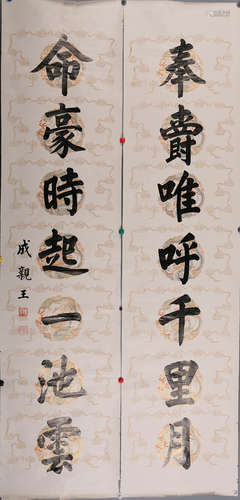 奉爵唯呼千里月
命豪時起一池雲
成親王